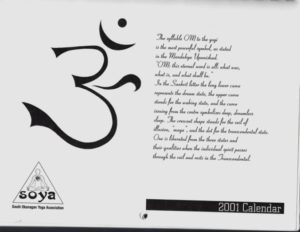 ॐ
The syllable OM to the yogi
is the most powerful symbol, as stated
in the Mandukya Upanishad.
"OM: this eternal word is all: what was,
what is, and what shall be."
In the Sanskrit letter the long lower curve
represents the dream state, the upper curve
stands for the waking state, and the curve
issuing from the centre symbolizes deep, dreamless
sleep. The crescent shape stands for the veil of
illusion, "maya", and the dot for the transcendental state.
One is liberated from the three states and
their qualities when the individual spirit passes
through the veil and rests in the Transcendental.
soya
South Okanagan Yoga Association
2001 Calendar